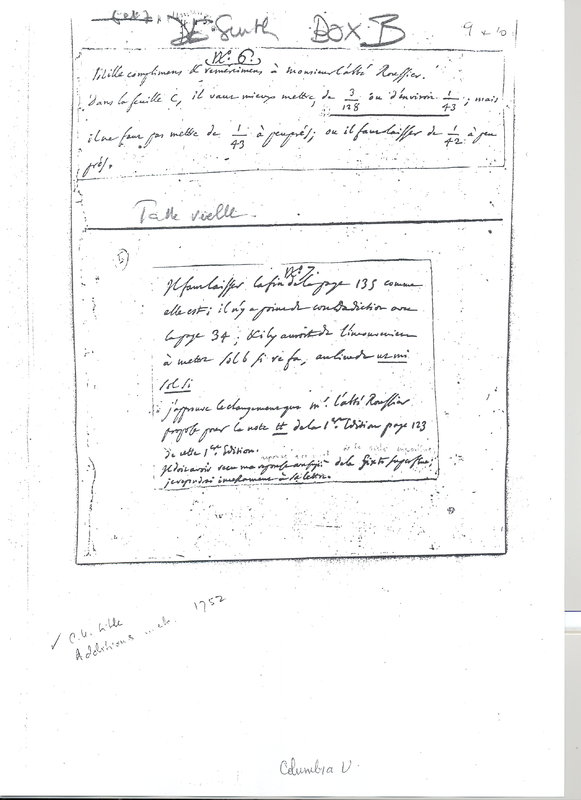 DE Smith BOX B 9 & 10
N.° 6.
Mille complimens & remercimens à monsieur l'abbé Roussier.
dans la feuille C, il vaut mieux mettre, de 3/128 ou d'environ 1/43; mais
il ne faut pas mettre de 1/43 à peu près; ou il faut laisser de 1/42 à peu
près.
Table vielle
N.° 7.
Il faut laisser la fin de la page 135 comme
elle est; il n'y a point de contradiction avec
la page 34; & il y auroit de l'inconvenient
à mettre sol b si re fa, au lieu de ut mi
sol si
j'approuve le changement que mr. l'abbé Roussier
propose pour la note tt de la 1ere Edition page 123
de cette 1ere Edition.
Il doit avoir recu ma reponse au sujet de la Sixte superflue;
je repondrai incessamment à sa lettre.
✓ C.U. title
Additions 1752
Columbia U.